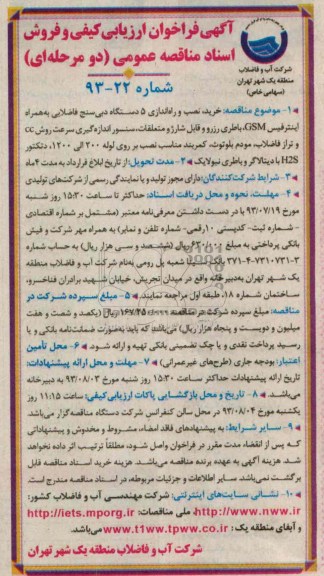 آگهی فراخوان ارزیابی کیفی و فروش
اسناد مناقصه عمومی (دو مرحله‌ای)
شماره ۲۲-۹۳
شرکت آب و فاضلاب
منطقه یک شهر تهران
(سهامی خاص)
۱- موضوع مناقصه: خرید، نصب و راه‌اندازی ۵ دستگاه دبی‌سنج فاضلابی به‌همراه
اینترفیس GSM، باطری رزرو و قابل شارژ و متعلقات، سنسور اندازه‌گیری سرعت روش cc
و تراز فاضلاب، مودم بلوتوث، کمربند مناسب نصب بر روی لوله ۲۰۰ الی ۱۲۰۰، دتکتور
H2S با دیتالاگر و باطری نیولایک ۲- مدت تحویل: از تاریخ ابلاغ قرارداد به مدت ۴ ماه
۳- شرایط شرکت‌کنندگان: دارای مجوز تولید و یا نمایندگی رسمی از شرکت‌های تولیدی
۴- مهلت، نحوه و محل دریافت اسناد: حداکثر تا ساعت ۱۵:۳۰ روز شنبه
مورخ ۹۳/۰۷/۱۹ با در دست داشتن معرفی‌نامه معتبر (مشتمل بر شماره اقتصادی
- شماره ثبت- کدپستی ۱۰رقمی- شماره تلفن و نمابر) به همراه مهر شرکت و فیش
بانکی پرداختی به مبلغ ریال (ششصد و سی هزار ریال) به حساب شماره
۳-۷۳۱۰۷۳-۴-۳۷۱ بانک شعبه پل رومی به‌نام شرکت آب و فاضلاب منطقه
یک شهر تهران به‌دبیرخانه واقع در میدان تجریش، خیابان شهید برادران فناخسرو،
ساختمان شماره ۱۸، طبقه اول مراجعه نمایند. ۵- مبلغ سپرده شرکت در
مناقصه: مبلغ سپرده شرکت در مناقصه ریال (یکصد و شصت و هفت
میلیون و دویست و پنجاه هزار ریال) می‌باشد که باید به‌صورت ضمانت‌نامه بانکی و یا
رسید پرداخت نقدی و یا چک تضمینی بانکی تهیه و ارائه شود. ۶- محل تأمین
اعتبار: بودجه جاری (طرح‌های غیرعمرانی) ۷- مهلت و محل ارائه پیشنهادات:
تاریخ ارائه پیشنهادات حداکثر ساعت ۱۵:۳۰ روز شنبه مورخ ۹۳/۰۸/۰۳ به دبیرخانه
می‌باشد. ۸- تاریخ و محل بازگشایی پاکات ارزیابی کیفی: ساعت ۱۱:۱۵ روز
یکشنبه مورخ ۹۳/۰۸/۰۴ در محل سالن کنفرانس شرکت دستگاه مناقصه‌گزار می‌باشد.
۹- سایر شرایط: به پیشنهادهای فاقد امضاء، مشروط و مخدوش و پیشنهاداتی
که پس از انقضاء مدت مقرر در فراخوان واصل شود، مطلقاً ترتیب اثر داده نخواهد
شد. هزینه آگهی به عهده برنده مناقصه می‌باشد. هزینه خرید اسناد مناقصه قابل
برگشت نمی‌باشد. سایر اطلاعات و جزئیات مربوطه، در اسناد مناقصه مندرج است.
۱۰- نشانی سایت‌های اینترنتی: شرکت مهندسی آب و فاضلاب کشور:
http://www.nww.ir، ملی مناقصات: http://iets.mporg.ir
و آبفای منطقه یک: www.t1ww.tpww.co.ir می‌باشد.
شرکت آب و فاضلاب منطقه یک شهر تهران